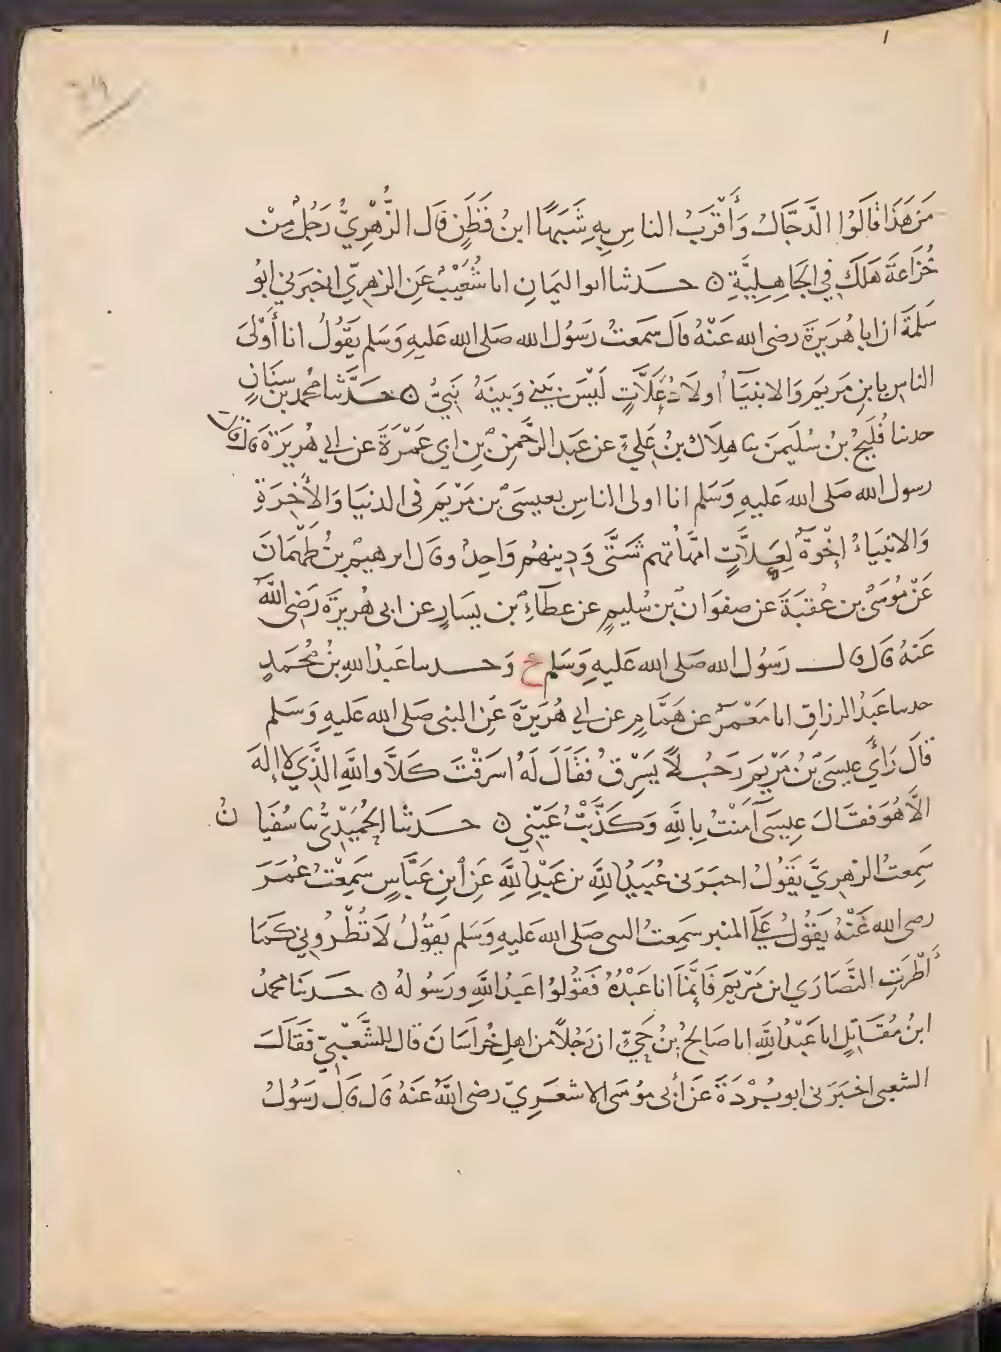 مَن هَذَا قَالُوا الدَّجَّالُ وَأَقْرَبُ الناسِ بِهِ شَبَهًا ابنُ قَطَنٍ قال الزُّهْرِيُّ رَجُلٌ مِنْ
خُزَاعَةَ هَلَكَ فِي الجَاهِلِيَّةِ ۞ حَدثنا ابو اليَمانِ انا شُعَيْبٌ عَنِ الزهريّ اخبرني ابُو
سَلَمَةَ ان ابا هُرَيرَةَ رضى الله عَنْهُ قال سَمعتُ رَسُول الله صَلى الله عَليهِ وَسَلم يَقُولُ انا أَوْلَى
الناسِ بابنِ مَريَم وَالانبيَآءُ اولَادُ عَلَّاتٍ لَيْسَ بَيْنِي وَبَينَهُ نَبِيٌّ ۞ حَدَّثنا محمد بن سِنَانٍ
حدثنا فُلَيحُ بنُ سُلَيمنَ ثنا هِلَالُ بنُ عَلِيّ عن عَبد الرَّحمنِ بنِ ابي عَمْرَةَ عن ابي هُرَيرَةَ قال قال
رسول الله صَلى الله عَليهِ وَسَلم انا اولى الناسِ بعيسَى بن مَرْيَم في الدنيَا وَالأخِرَةِ
وَالانبيَاءُ إخْوَةٌ لِعَلَّاتٍ امّهاتهم شَتَّى وَدِينهُم وَاحِدٌ وقال ابرهيمُ بنُ طَهْمَانَ
عَنْ مُوسَى بن عُقبَةَ عن صفوَانَ بن سُليمٍ عن عطاءِ بن يسَارٍ عن ابى هُريرَة رَضِى اللَّهُ
عَنهُ قال قال رَسُول الله صَلى الله عَليهِ وَسَلم ح وَحدثنا عَبدُ اللهِ بنُ محُمَدٍ
حدثنا عَبدُ الرزاقِ انا مَعْمَرٌ عن هَمَّامٍ عن ابي هُرَيرَةَ عَنِ النبى صَلى الله عَليهِ وَسَلم
قالَ رَأى عِيسَى بنُ مَرْيَم رَجُلاً يَسْرِقُ فقَالَ لَهُ اسَرَقْتَ كَلاَّ واللَّهِ الذَّي لا إلهَ
الَّا هُوَ فقَالَ عِيسَى آمَنْتُ بِاللَّهِ وَكَذَّبْتُ عَيْنِي ۞ حَدثنا الحُمَيدِيُّ ثنا سُفيَانُ
سَمِعتُ الزهرِيَّ يَقُولُ اخبَرَنى عُبَيدُ اللَّهِ بن عَبْدِ اللَّهِ عَنِ ابنِ عَبَّاسٍ سَمِعْتُ عُمَرَ
رضى الله عَنْهُ يَقُولُ عَلَى المنبر سَمِعتُ النبى صَلى الله عَليهِ وَسَلم يَقُولُ لَا تُطْرُونِي كَمَا
أَطْرَتِ النَّصَارَي ابن مَرْيَم فَإنَّمَا انا عَبْدُهُ فَقُولُوا عَبدُ اللَّهِ ورَسُولهُ ۞ حَدثنا محمدُ
ابنُ مُقَاتِلٍ انا عَبْدُ اللَّهِ انا صَالِحُ بْنُ حَيّ ان رَجُلاً من اهلِ خُرَاسَانَ قال للشَّعْبِيّ فَقَالَ
الشعبى اخبَرَنى ابو بُرْدَةَ عَن أبى مُوسَى الاشعَرِيّ رضى اللَّهُ عَنهُ قال قال رَسُولُ